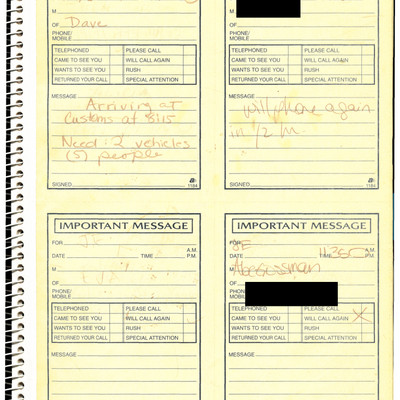 M
OF Dave
PHONE/
MOBILE
TELEPHONED PLEASE CALL
CAME TO SEE YOU WILL CALL AGAIN
WANTS TO SEE YOU RUSH
RETURNED YOUR CALL SPECIAL ATTENTION
MESSAGE
Arriving at
Customs at 8:15
Need: 2 vehicles
(5) people
SIGNED
1184
M
OF
PHONE/
MOBILE
TELEPHONED PLEASE CALL
CAME TO SEE YOU WILL CALL AGAIN
WANTS TO SEE YOU RUSH
RETURNED YOUR CALL SPECIAL ATTENTION
MESSAGE
will phone again
in 1/2 hr.
SIGNED
1184
IMPORTANT MESSAGE
FOR
DATE TIME A.M. P.M.
M
OF
PHONE/
MOBILE
TELEPHONED PLEASE CALL
CAME TO SEE YOU WILL CALL AGAIN
WANTS TO SEE YOU RUSH
RETURNED YOUR CALL SPECIAL ATTENTION
MESSAGE
IMPORTANT MESSAGE
FOR JE
DATE TIME 11:35 A.M. P.M.
M
OF
PHONE/
MOBILE
TELEPHONED PLEASE CALL
CAME TO SEE YOU WILL CALL AGAIN X
WANTS TO SEE YOU RUSH
RETURNED YOUR CALL SPECIAL ATTENTION
MESSAGE